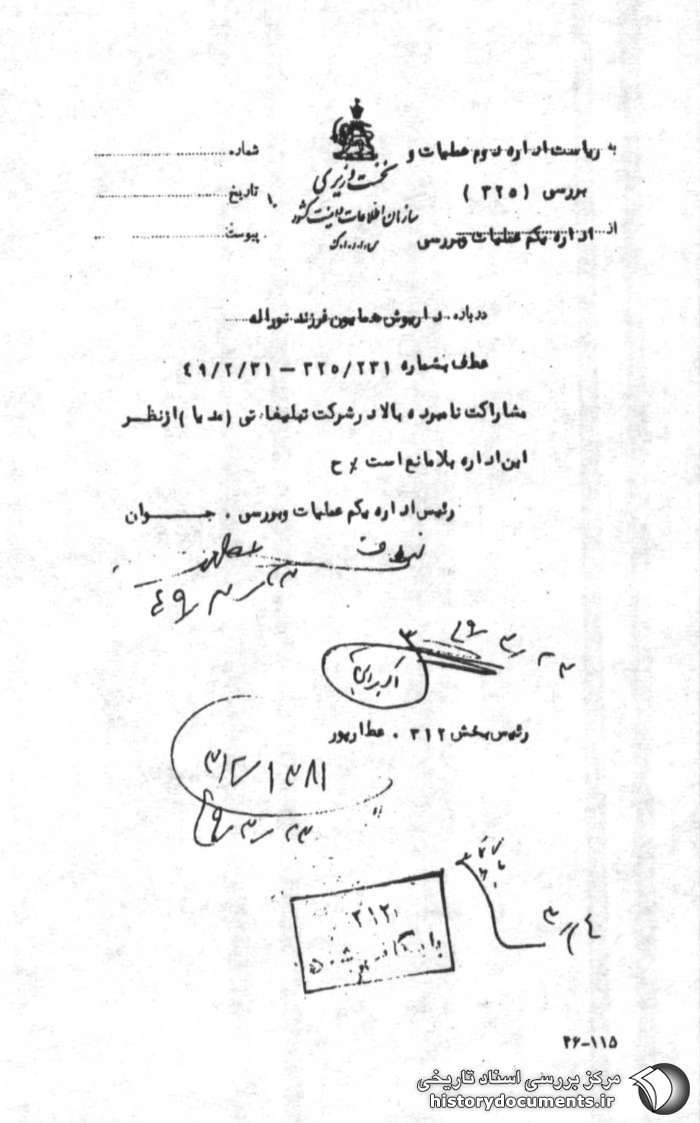 به ریاست اداره دوم عملیات و
بررسی ( ۳۲۵ )
از اداره یکم عملیات و بررسی
نخست وزیری
سازمان اطلاعات و امنیت کشور
س.ا.و.ا.ک
شماره
تاریخ
پیوست
درباره داریوش همایون فرزند نوراله
عطف بشماره ۳۲۵/۲۳۱ – ۴۹/۲/۳۱
مشارکت نامبرده بالا در شرکت تبلیغاتی ( مدیا ) از نظر
این اداره بلامانع است ٪ ح
رئیس اداره یکم عملیات و بررسی . جوان
رئیس بخش ۳۱۲ . عطارپور
۳۱۲/۱۳۸۱
۴۹/۳/۲۳
۳۱۲
بایگانی شود
۳/۴
۳۶-۱۱۵
مرکز بررسی اسناد تاریخی
historydocuments.ir